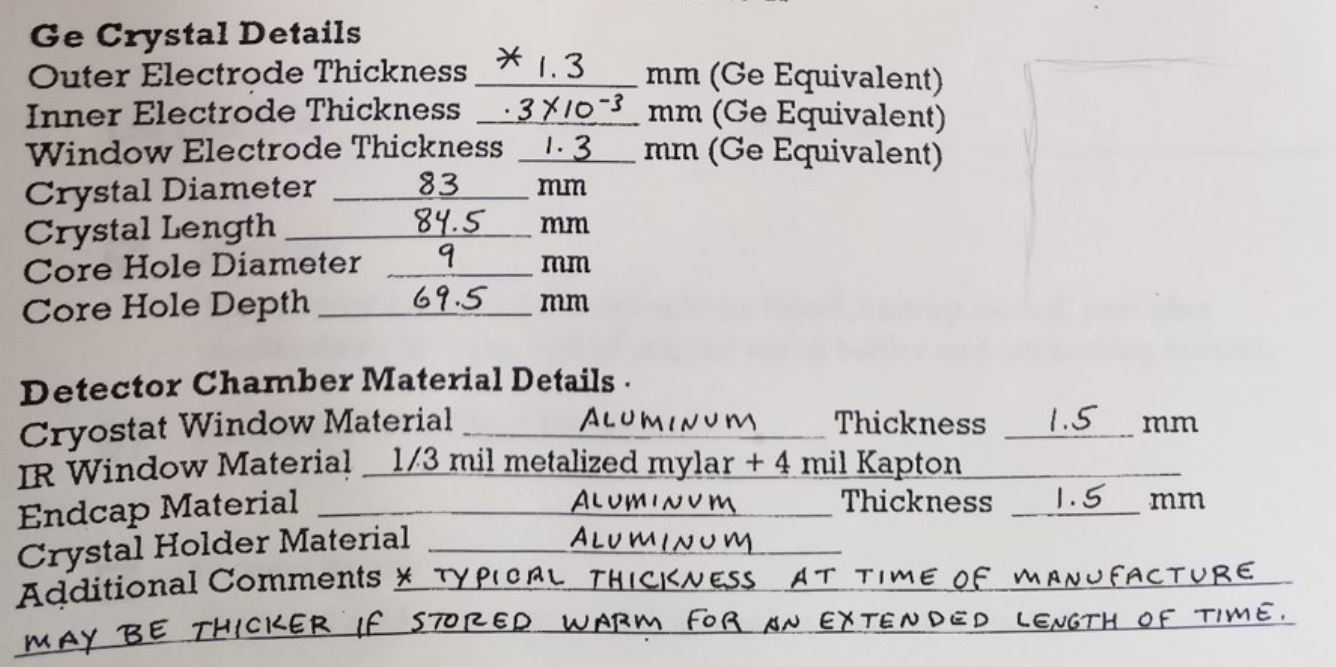 Ge Crystal Details
Outer Electrode Thickness * 1.3 mm (Ge Equivalent)
Inner Electrode Thickness .3X10⁻³ mm (Ge Equivalent)
Window Electrode Thickness 1.3 mm (Ge Equivalent)
Crystal Diameter 83 mm
Crystal Length 84.5 mm
Core Hole Diameter 9 mm
Core Hole Depth 69.5 mm
Detector Chamber Material Details
Cryostat Window Material ALUMINUM Thickness 1.5 mm
IR Window Material 1/3 mil metalized mylar + 4 mil Kapton
Endcap Material ALUMINUM Thickness 1.5 mm
Crystal Holder Material ALUMINUM
Additional Comments * TYPICAL THICKNESS AT TIME OF MANUFACTURE
MAY BE THICKER IF STORED WARM FOR AN EXTENDED LENGTH OF TIME.